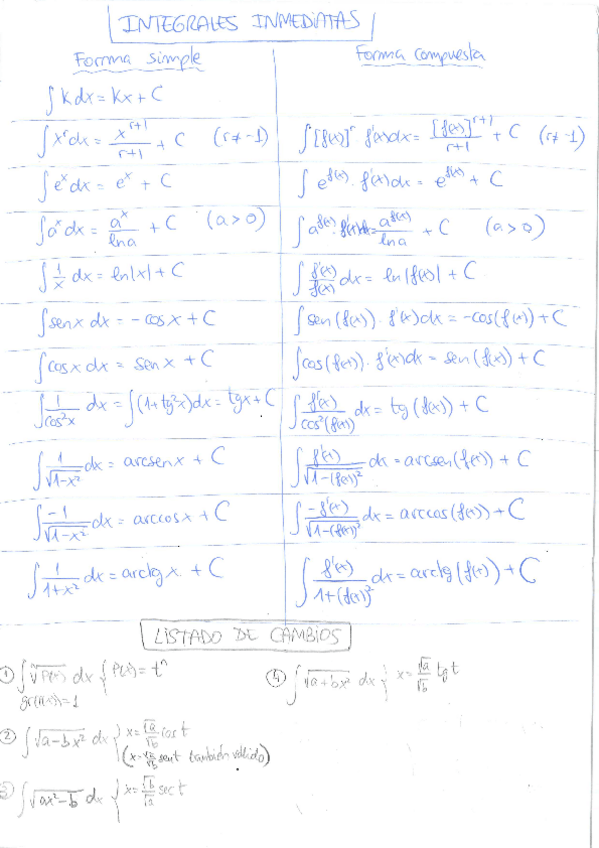 INTEGRALES INMEDIATAS
Forma simple Forma compuesta
∫ K dx = Kx + C
∫ x^r dx = x^(r+1)/(r+1) + C (r ≠ -1) ∫ [f(x)]^r f'(x)dx = [f(x)]^(r+1)/(r+1) + C (r ≠ -1)
∫ e^x dx = e^x + C ∫ e^f(x) · f'(x) dx = e^f(x) + C
∫ a^x dx = a^x/ln a + C (a > 0) ∫ a^f(x) · f'(x)dx = a^f(x)/ln a + C (a > 0)
∫ 1/x dx = ln|x| + C ∫ f'(x)/f(x) dx = ln|f(x)| + C
∫ sen x dx = -cos x + C ∫ sen(f(x)) · f'(x)dx = -cos(f(x)) + C
∫ cos x dx = sen x + C ∫ cos(f(x)) · f'(x)dx = sen(f(x)) + C
∫ 1/cos²x dx = ∫(1+tg²x)dx = tg x + C ∫ f'(x)/cos²(f(x)) dx = tg(f(x)) + C
∫ 1/√(1-x²) dx = arcsen x + C ∫ f'(x)/√(1-(f(x))²) dx = arcsen(f(x)) + C
∫ -1/√(1-x²) dx = arccos x + C ∫ -f'(x)/√(1-(f(x))²) dx = arccos(f(x)) + C
∫ 1/(1+x²) dx = arctg x + C ∫ f'(x)/(1+(f(x))²) dx = arctg(f(x)) + C
LISTADO DE CAMBIOS
① ∫ ⁿ√P(x) dx { P(x) = tⁿ
gr(P(x))=1
② ∫ √(a-bx²) dx { x = √a/√b cos t
(x = √a/√b sen t también válido)
③ ∫ √(ax²-b) dx { x = √b/√a sec t
④ ∫ √(a+bx²) dx { x = √a/√b tg t